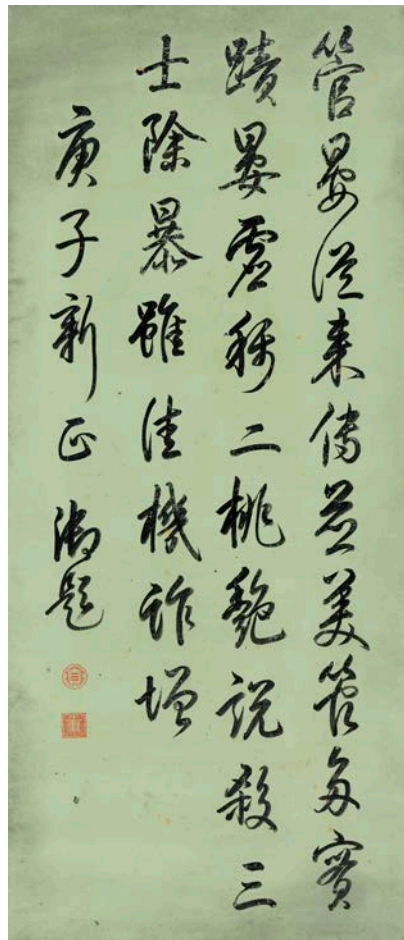 管晏從来傳並美管多實
蹟晏虚稱二桃艷說殺三
士除暴雖佳機詐增
庚子新正御題